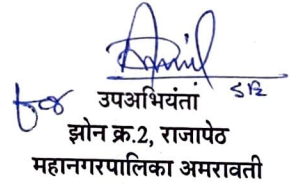 for उपअभियंता
झोन क्र.2, राजापेठ
महानगरपालिका अमरावती